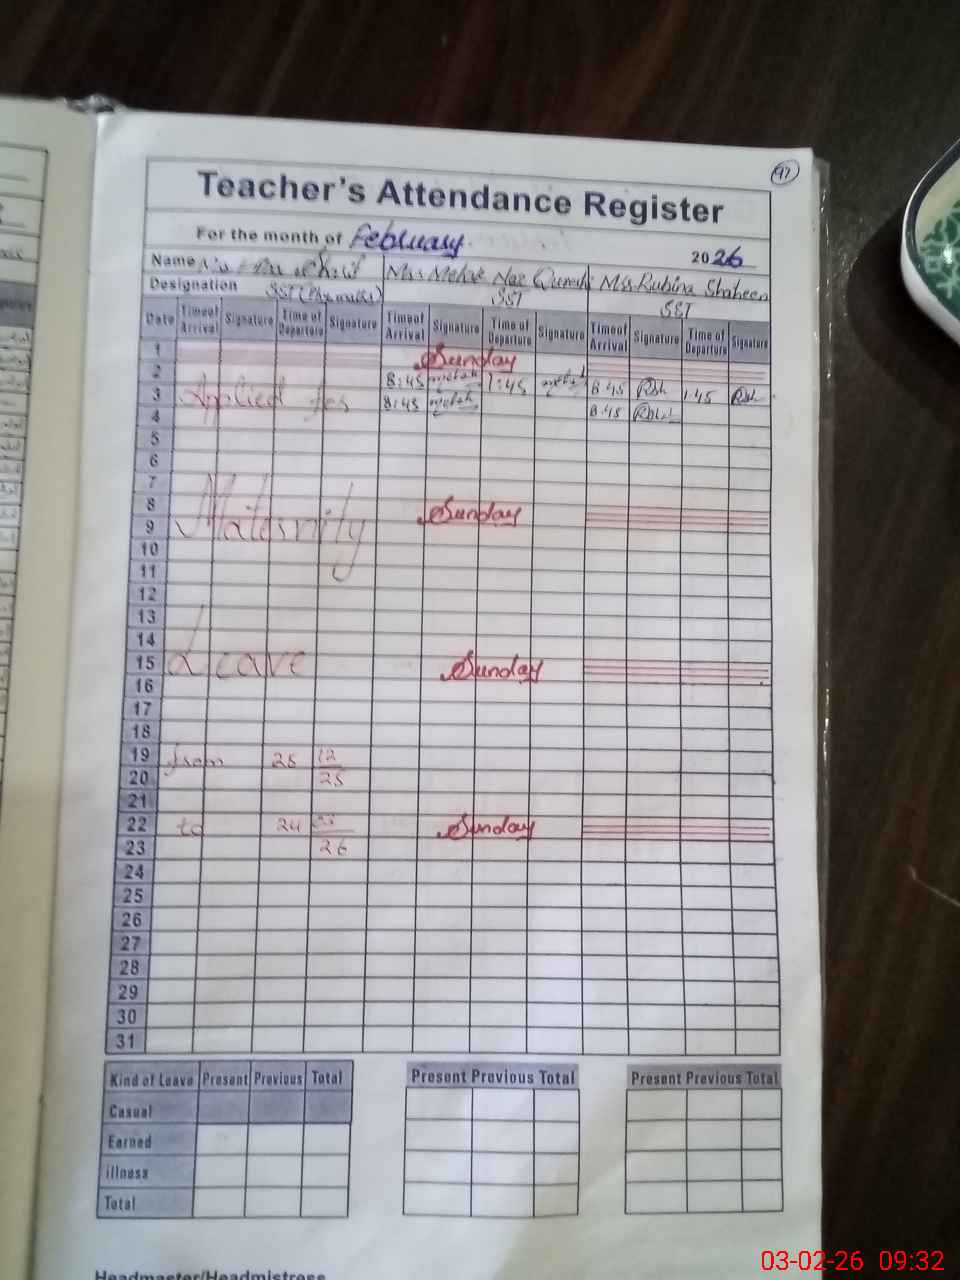 97
Teacher's Attendance Register
For the month of February. 2026
Name Mrs Mehak Naz Qureshi Mrs Rubina Shaheen
Designation SST SST SST
Date Time of Arrival Signature Time of Departure Signature Time of Arrival Signature Time of Departure Signature Time of Arrival Signature Time of Departure Signature
1 Sunday
2 8:45 1:45 8:45 1:45
3 Applied for 8:45 8:45
4
5
6
7
8 Maternity Sunday
9
10
11
12
13
14
15 Leave Sunday
16
17
18
19 from 25 12
20 25
21
22 to 24 Sunday
23 26
24
25
26
27
28
29
30
31
Kind of Leave Present Previous Total Present Previous Total Present Previous Total
Casual
Earned
illness
Total
Headmaster/Headmistress
03-02-26 09:32